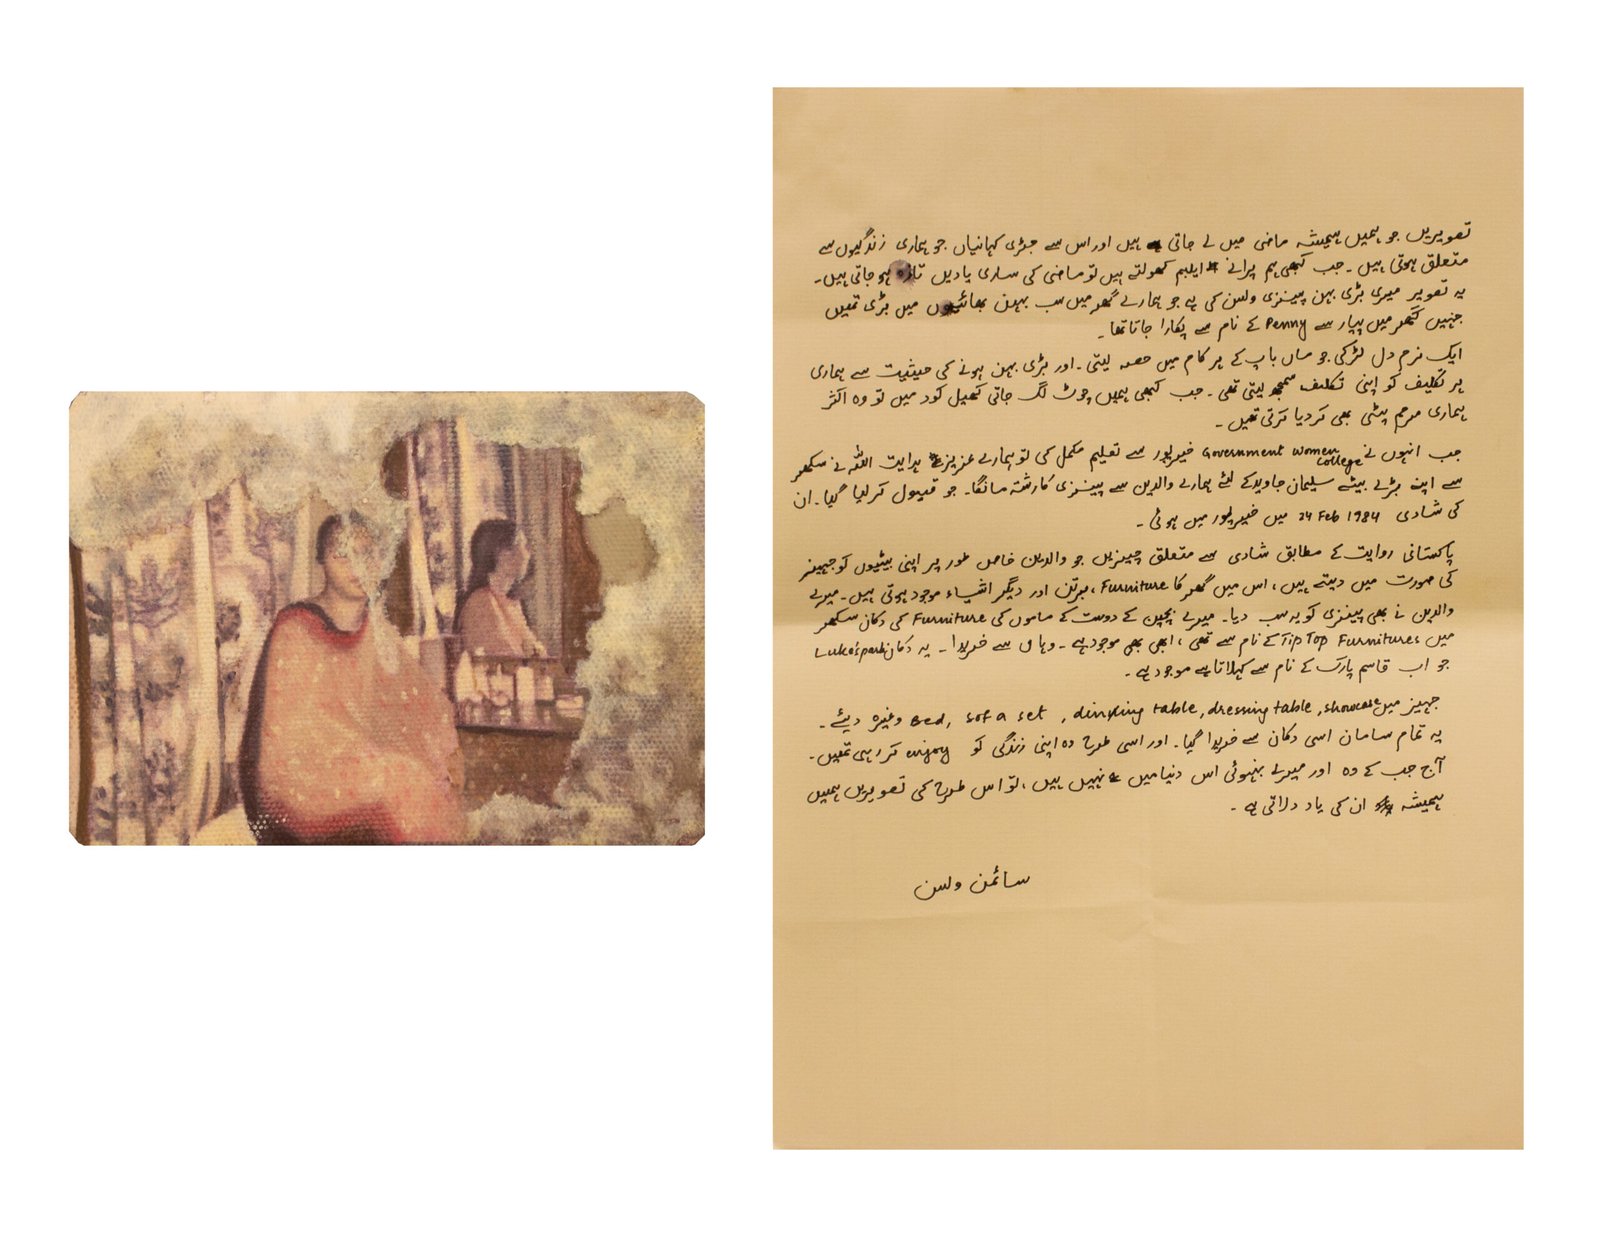 تصویریں جو ہمیں ہمیشہ ماضی میں لے جاتی ہیں اور اس سے جڑی کہانیاں جو ہماری زندگیوں سے
متعلق ہوتی ہیں۔ جب کبھی ہم پرانے ایلبم کھولتے ہیں تو ماضی کی ساری یادیں تازہ ہو جاتی ہیں۔
یہ تصویر میری بڑی بہن پینزی ولسن کی ہے جو ہمارے گھر میں سب بہن بھائیوں میں بڑی تھیں
جنہیں گھر میں پیار سے Penny کے نام سے پکارا جاتا تھا۔
ایک نرم دل لڑکی جو ماں باپ کے ہر کام میں حصہ لیتی۔ اور بڑی بہن ہونے کی حیثیت سے ہماری
ہر تکلیف کو اپنی تکلیف سمجھ لیتی تھی۔ جب کبھی ہمیں چوٹ لگ جاتی کھیل کود میں تو وہ اکثر
ہماری مرہم پٹی بھی کر دیا کرتی تھیں۔
جب انہوں نے Government Women College خیرپور سے تعلیم مکمل کی تو ہمارے عزیز ہدایت اللہ نے سکھر
سے اپنے بڑے بیٹے سلیمان جاوید کے لئے ہمارے والدین سے پینزی کا رشتہ مانگا۔ جو قبول کر لیا گیا۔ ان
کی شادی 24 Feb 1984 میں خیرپور میں ہوئی۔
پاکستانی روایت کے مطابق شادی سے متعلق چیزیں جو والدین خاص طور پر اپنی بیٹیوں کو جہیز
کی صورت میں دیتے ہیں، اس میں گھر کا Furniture، برتن اور دیگر اشیاء موجود ہوتی ہیں۔ میرے
والدین نے بھی پینزی کو یہ سب دیا۔ میرے بچپن کے دوست کے ماموں کی Furniture کی دکان سکھر
میں Tip Top Furnitures کے نام سے تھی، ابھی بھی موجود ہے۔ وہاں سے خریدا۔ یہ دکان Luke's park
جو اب قاسم پارک کے نام سے کہلاتا ہے موجود ہے۔
جہیز میں Bed, sofa set, dinning table, dressing table, showcase وغیرہ دیئے۔
یہ تمام سامان اسی دکان سے خریدا گیا۔ اور اسی طرح وہ اپنی زندگی کو enjoy کر رہی تھیں۔
آج جب کے وہ اور میرے بہنوئی اس دنیا میں نہیں ہیں، تو اس طرح کی تصویریں ہمیں
ہمیشہ ان کی یاد دلاتی ہے۔
سائمن ولسن